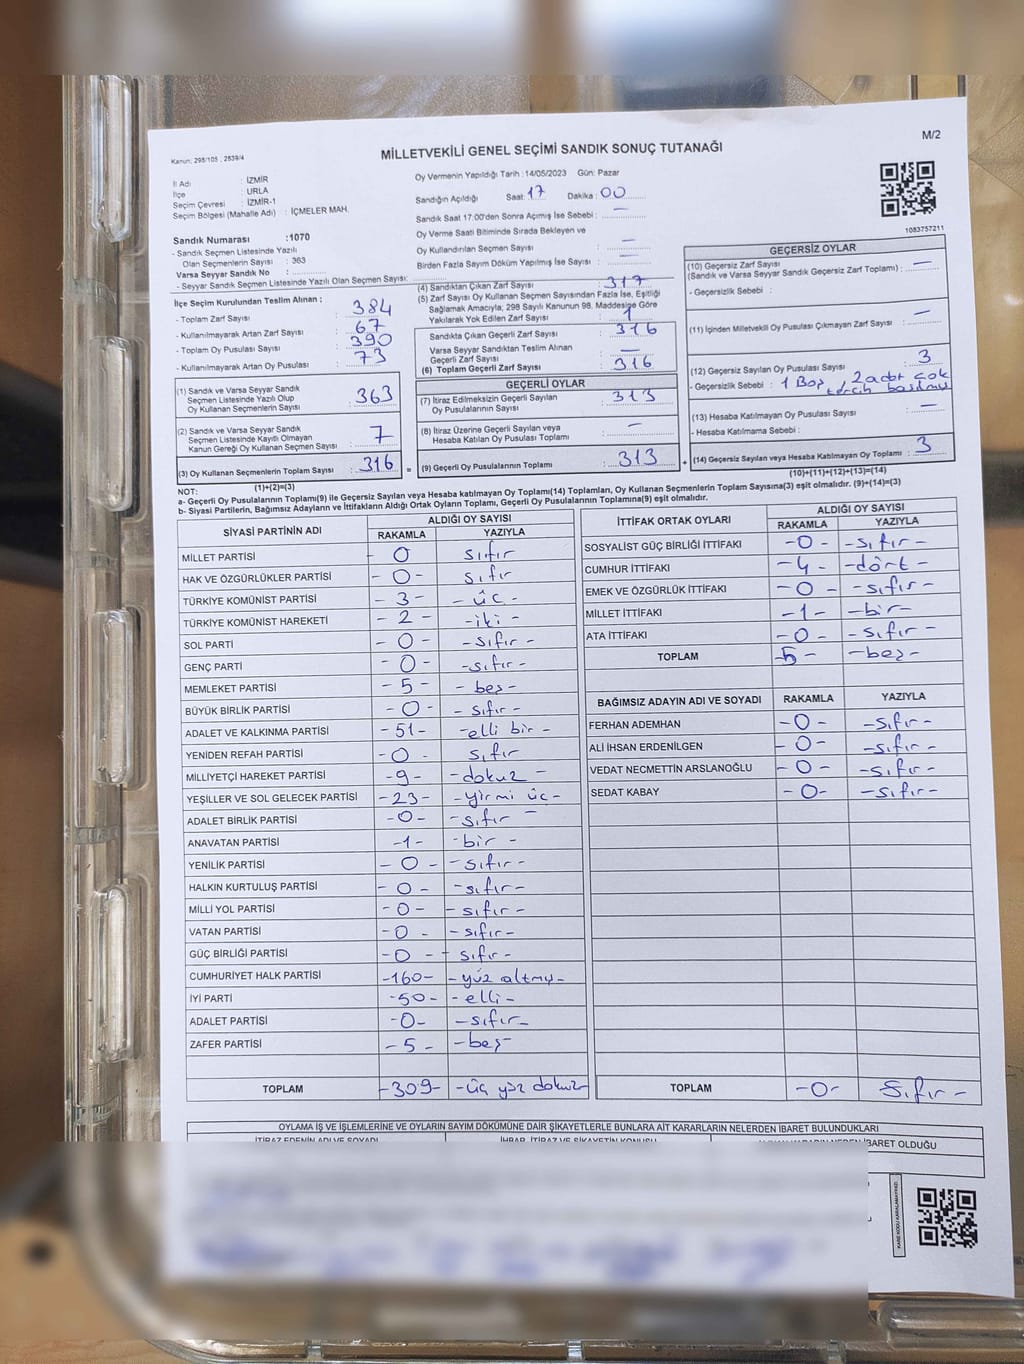 M/2
Kanun; 298/105 , 2839/4
MİLLETVEKİLİ GENEL SEÇİMİ SANDIK SONUÇ TUTANAĞI
İl Adı : İZMİR
İlçe : URLA
Seçim Çevresi : İZMİR-1
Seçim Bölgesi (Mahalle Adı) : İÇMELER MAH.
Sandık Numarası :1070
- Sandık Seçmen Listesinde Yazılı
Olan Seçmenlerin Sayısı : 363
Varsa Seyyar Sandık No :
- Seyyar Sandık Seçmen Listesinde Yazılı Olan Seçmen Sayısı:
İlçe Seçim Kurulundan Teslim Alınan :
- Toplam Zarf Sayısı : 384
- Kullanılmayarak Artan Zarf Sayısı : 67
- Toplam Oy Pusulası Sayısı : 390
- Kullanılmayarak Artan Oy Pusulası : 73
(1) Sandık ve Varsa Seyyar Sandık
Seçmen Listesinde Yazılı Olup
Oy Kullanan Seçmenlerin Sayısı : 363
(2) Sandık ve Varsa Seyyar Sandık
Seçmen Listesinde Kayıtlı Olmayan
Kanun Gereği Oy Kullanan Seçmen Sayısı : 7
(3) Oy Kullanan Seçmenlerin Toplam Sayısı : 316 =
(1)+(2)=(3)
Oy Vermenin Yapıldığı Tarih : 14/05/2023 Gün: Pazar
Sandığın Açıldığı Saat: 17 Dakika : 00
Sandık Saat 17:00'den Sonra Açımış İse Sebebi : —
Oy Verme Saati Bitiminde Sırada Bekleyen ve
Oy Kullandırılan Seçmen Sayısı : —
Birden Fazla Sayım Döküm Yapılmış İse Sayısı : —
(4) Sandıktan Çıkan Zarf Sayısı : 317
(5) Zarf Sayısı Oy Kullanan Seçmen Sayısından Fazla İse, Eşitliği
Sağlamak Amacıyla; 298 Sayılı Kanunun 98. Maddesine Göre
Yakılarak Yok Edilen Zarf Sayısı : 1
Sandıkta Çıkan Geçerli Zarf Sayısı : 316
Varsa Seyyar Sandıktan Teslim Alınan
Geçerli Zarf Sayısı : —
(6) Toplam Geçerli Zarf Sayısı : 316
GEÇERLİ OYLAR
(7) İtiraz Edilmeksizin Geçerli Sayılan
Oy Pusulalarının Sayısı : 313
(8) İtiraz Üzerine Geçerli Sayılan veya
Hesaba Katılan Oy Pusulası Toplamı : —
(9) Geçerli Oy Pusulalarının Toplamı : 313 +
1083757211
GEÇERSİZ OYLAR
(10) Geçersiz Zarf Sayısı
(Sandık ve Varsa Seyyar Sandık Geçersiz Zarf Toplamı) : —
- Geçersizlik Sebebi :
(11) İçinden Milletvekili Oy Pusulası Çıkmayan Zarf Sayısı : —
(12) Geçersiz Sayılan Oy Pusulası Sayısı : 3
- Geçersizlik Sebebi : 1 Boş, 2 adet çok
tercih basılmış
(13) Hesaba Katılmayan Oy Pusulası Sayısı : —
- Hesaba Katılmama Sebebi :
(14) Geçersiz Sayılan veya Hesaba Katılmayan Oy Toplamı : 3
(10)+(11)+(12)+(13)=(14)
NOT:
a- Geçerli Oy Pusulalarının Toplamı(9) ile Geçersiz Sayılan veya Hesaba katılmayan Oy Toplamı(14) Toplamları, Oy Kullanan Seçmenlerin Toplam Sayısına(3) eşit olmalıdır. (9)+(14)=(3)
b- Siyasi Partilerin, Bağımsız Adayların ve İttifakların Aldığı Ortak Oyların Toplamı, Geçerli Oy Pusulalarının Toplamına(9) eşit olmalıdır.
SİYASİ PARTİNİN ADI ALDIĞI OY SAYISI
RAKAMLA YAZIYLA
MİLLET PARTİSİ - 0 sıfır
HAK VE ÖZGÜRLÜKLER PARTİSİ - 0 - sıfır
TÜRKİYE KOMÜNİST PARTİSİ - 3 - - üç -
TÜRKİYE KOMÜNİST HAREKETİ - 2 - - iki -
SOL PARTİ - 0 - - sıfır -
GENÇ PARTİ - 0 - - sıfır -
MEMLEKET PARTİSİ - 5 - - beş -
BÜYÜK BİRLİK PARTİSİ - 0 - - sıfır -
ADALET VE KALKINMA PARTİSİ - 51 - - elli bir -
YENİDEN REFAH PARTİSİ - 0 - sıfır
MİLLİYETÇİ HAREKET PARTİSİ - 9 - - dokuz -
YEŞİLLER VE SOL GELECEK PARTİSİ - 23 - - yirmi üç -
ADALET BİRLİK PARTİSİ - 0 - - sıfır -
ANAVATAN PARTİSİ - 1 - - bir -
YENİLİK PARTİSİ - 0 - - sıfır -
HALKIN KURTULUŞ PARTİSİ - 0 - - sıfır -
MİLLİ YOL PARTİSİ - 0 - - sıfır -
VATAN PARTİSİ - 0 - - sıfır -
GÜÇ BİRLİĞİ PARTİSİ - 0 - - sıfır -
CUMHURİYET HALK PARTİSİ - 160 - - yüz altmış -
İYİ PARTİ - 50 - - elli -
ADALET PARTİSİ - 0 - - sıfır -
ZAFER PARTİSİ - 5 - - beş -
TOPLAM - 309 - - üç yüz dokuz
İTTİFAK ORTAK OYLARI ALDIĞI OY SAYISI
RAKAMLA YAZIYLA
SOSYALİST GÜÇ BİRLİĞİ İTTİFAKI - 0 - - sıfır -
CUMHUR İTTİFAKI - 4 - - dört -
EMEK VE ÖZGÜRLÜK İTTİFAKI - 0 - - sıfır -
MİLLET İTTİFAKI - 1 - - bir -
ATA İTTİFAKI - 0 - - sıfır -
TOPLAM - 5 - - beş -
BAĞIMSIZ ADAYIN ADI VE SOYADI RAKAMLA YAZIYLA
FERHAN ADEMHAN - 0 - - sıfır -
ALİ İHSAN ERDENİLGEN - 0 - - sıfır -
VEDAT NECMETTİN ARSLANOĞLU - 0 - - sıfır -
SEDAT KABAY - 0 - - sıfır -
TOPLAM - 0 - sıfır -
OYLAMA İŞ VE İŞLEMLERİNE VE OYLARIN SAYIM DÖKÜMÜNE DAİR ŞİKAYETLERLE BUNLARA AİT KARARLARIN NELERDEN İBARET BULUNDUKLARI
İTİRAZ EDENİN ADI VE SOYADI İHBAR, İTİRAZ VE ŞİKAYETİN KONUSU İBARET OLDUĞU